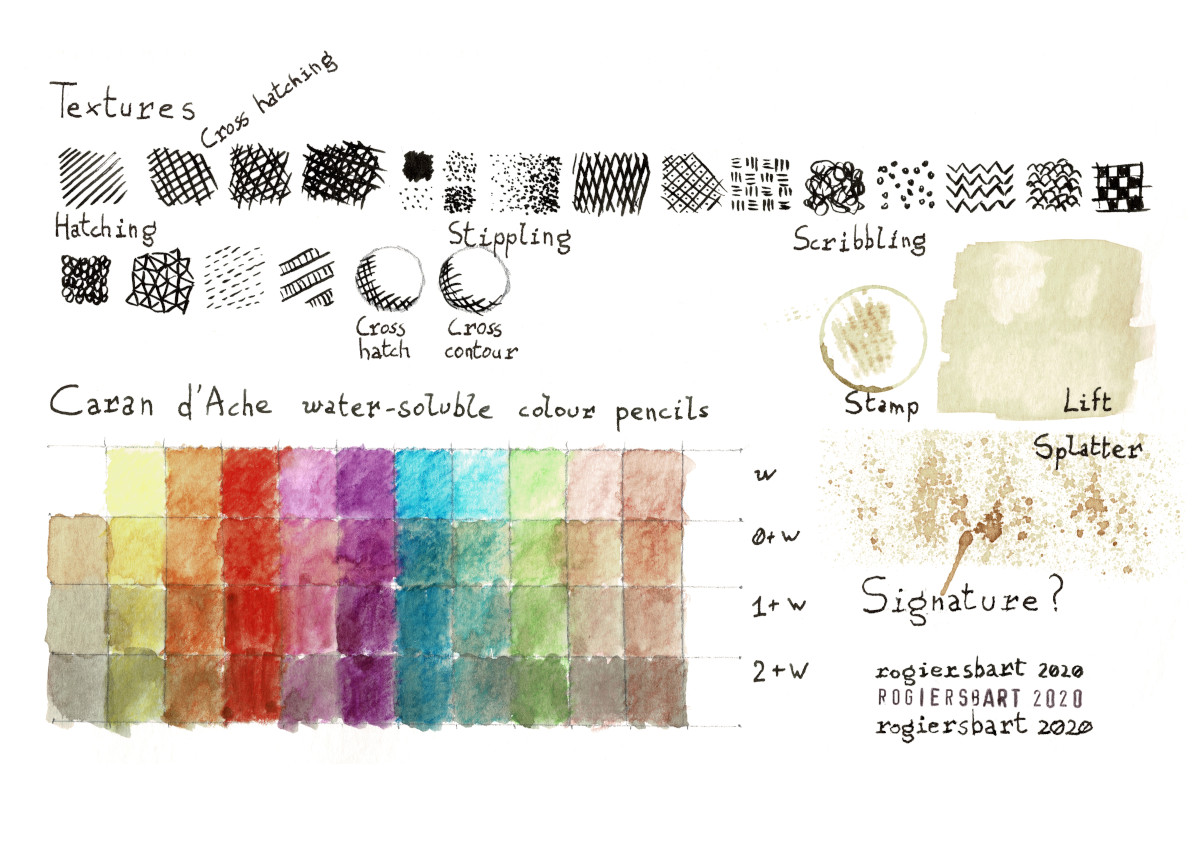 Textures
Cross hatching
Hatching
Stippling
Scribbling
Cross
hatch
Cross
contour
Stamp
Lift
Splatter
Caran d'Ache water-soluble colour pencils
w
0+w
1+w
2+w
Signature?
rogiersbart 2020
ROGIERSBART 2020
rogiersbart 2020